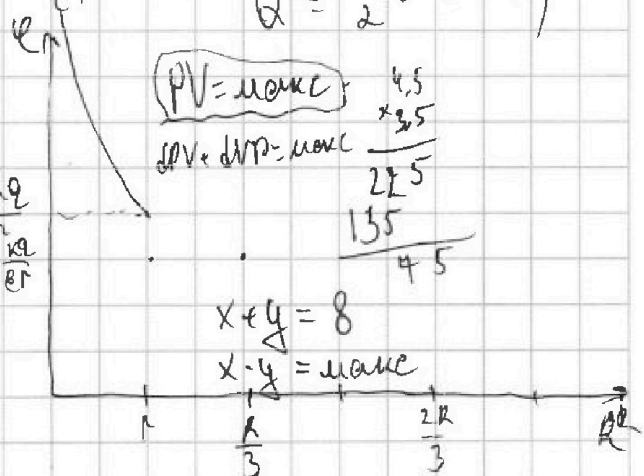 Q = 2
φ
PV = макс
4,5
×3,5
dPV + dVP = макс
225
135
45
q
kq
8r
x + y = 8
x · y = макс
r
R
3
2R
3